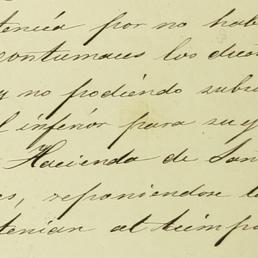 tencia por no hab
contumaces los dicen
y no podiendo subsa
l inferior para su y
Hacienda de San
es, reponiendose l
tenian al tiempo